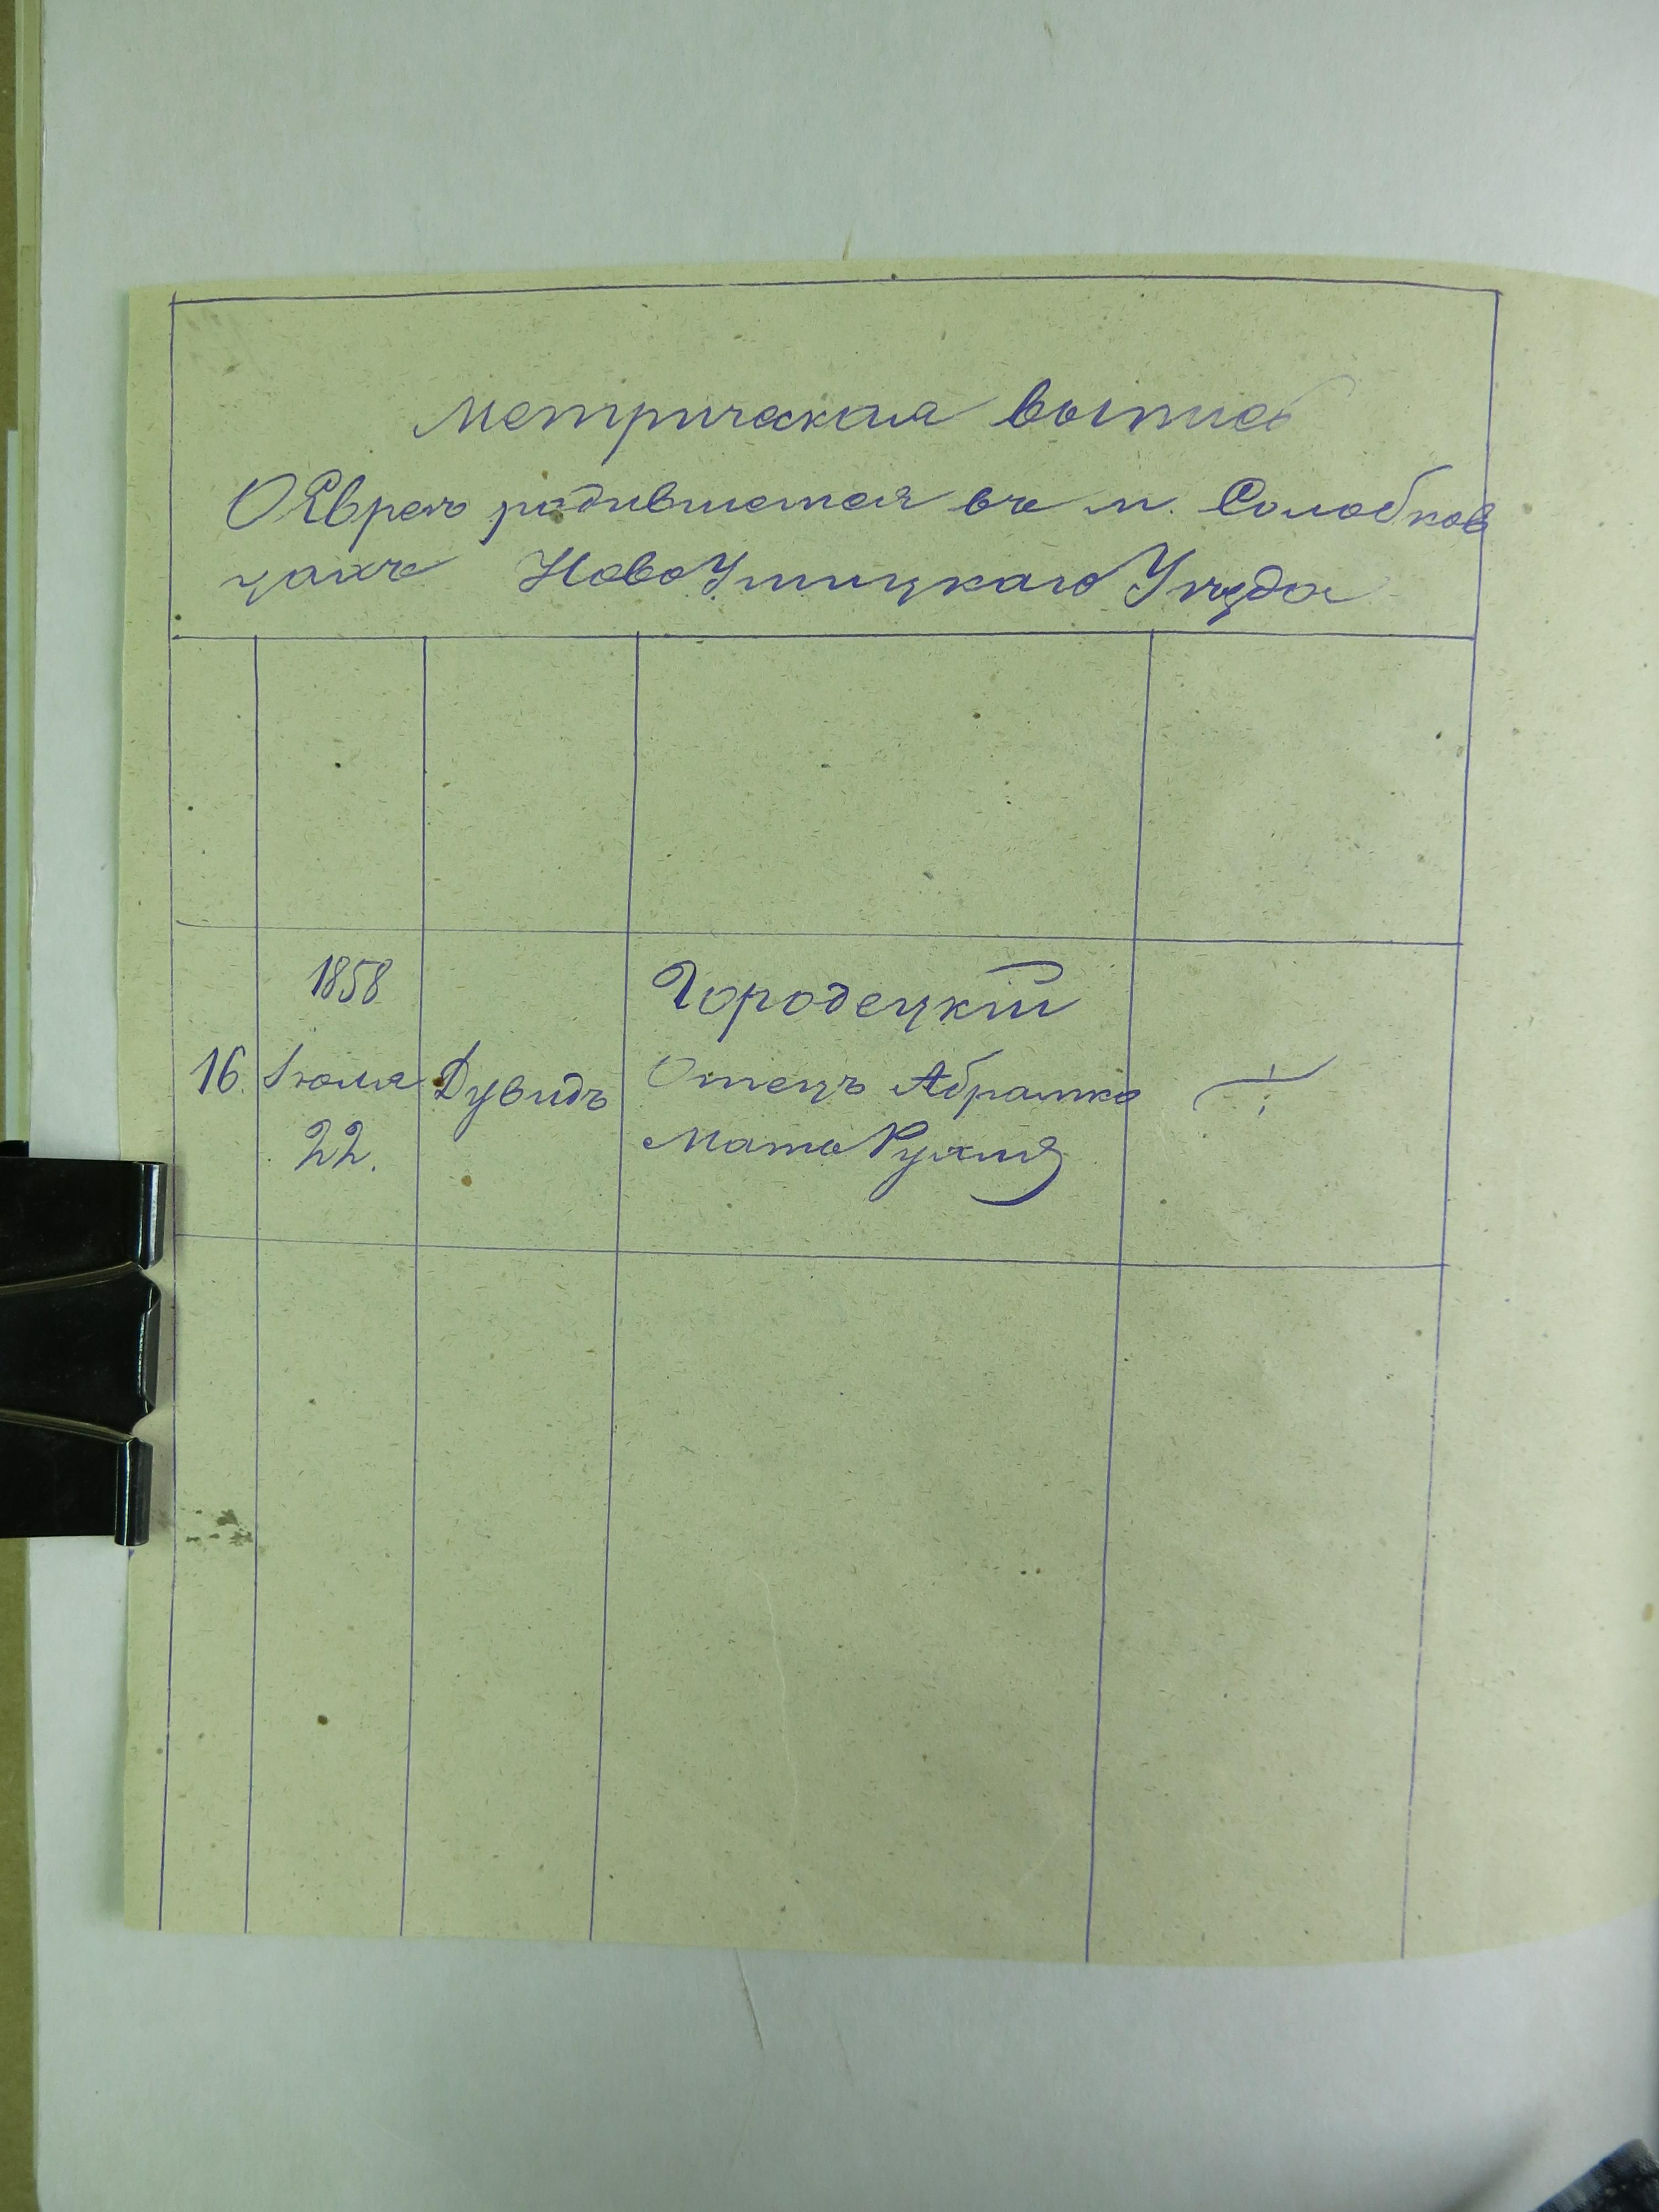 Метрическая выпись
О Еврея родившемся въ м. Солобков
цахъ НовоУшицкаго Уѣзда
1858
16. Іюля 22.
Дувидъ
Городецкій
Отецъ Абрамко
Мать Рухля